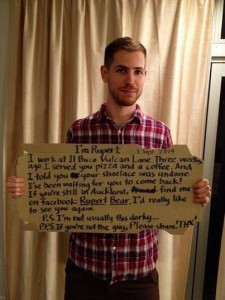 I'm Rupert. 3 Sept 2014
I work at Il Buco Vulcan Lane. Three weeks
ago I served you pizza and a coffee. And
I told you your shoelace was undone.
I've been waiting for you to come back!
If you're still in Auckland, find me
on facebook: Rupert Bear. I'd really like
to see you again.
P.S. I'm not usually this dorky...
P.P.S. If you're not the guy, Please share! THX